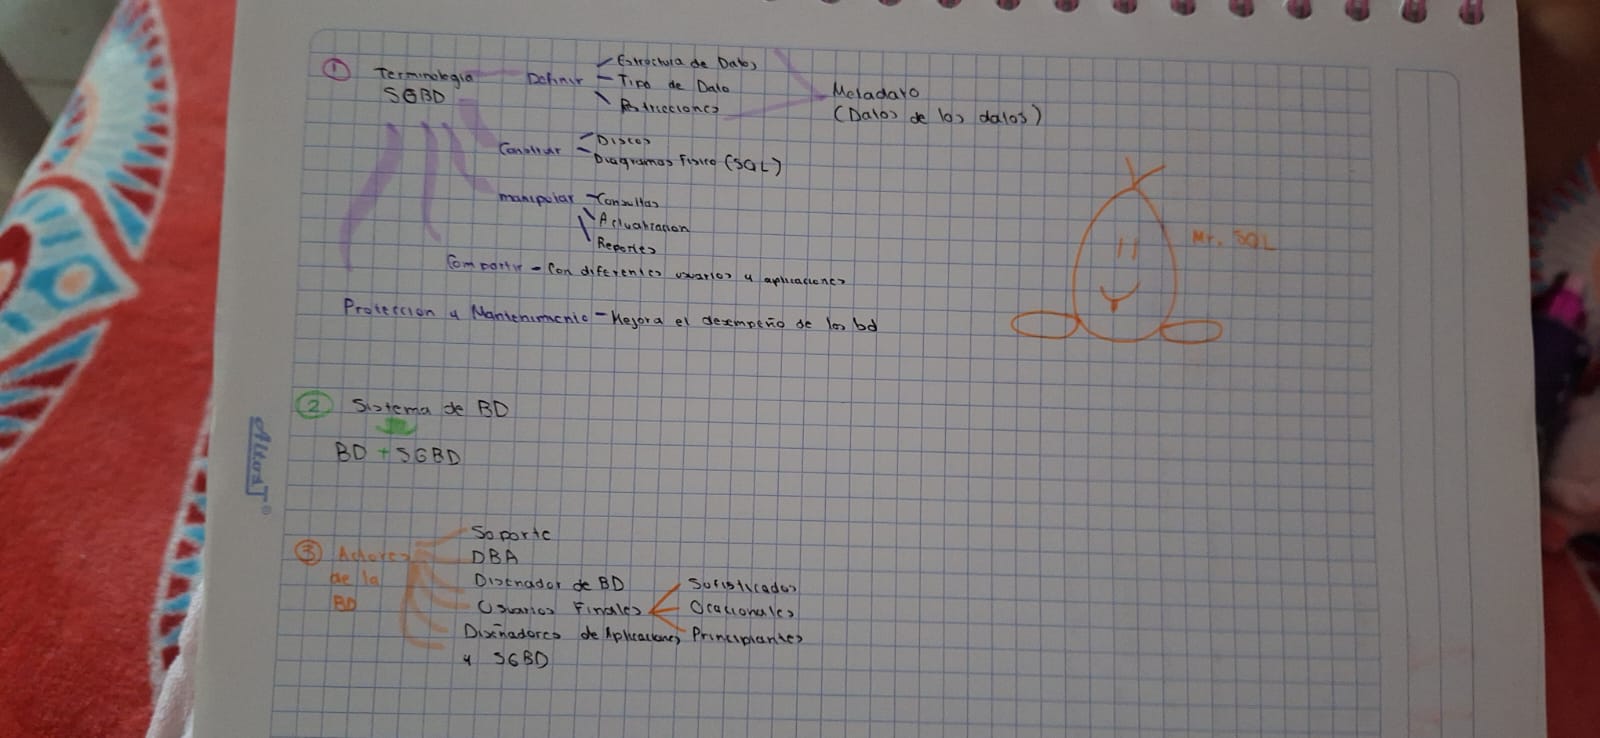 1 Terminologia
SGBD
Definir
Estructura de Datos
Tipo de Dato
Restricciones
Metadato
(Datos de los datos)
Construir
Discos
Diagramas Fisico (SQL)
manipular
Consultas
Actualizacion
Reportes
Compartir - Con diferentes usuarios y aplicaciones
Proteccion y Mantenimiento - Mejora el desempeño de las bd
Mr. SQL
2 Sistema de BD
BD + SGBD
AlterAT®
3 Actores
de la
BD
Soporte
DBA
Diseñador de BD
Usuarios Finales
Sofisticados
Ocacionales
Principiantes
Diseñadores de Aplicaciones
y SGBD